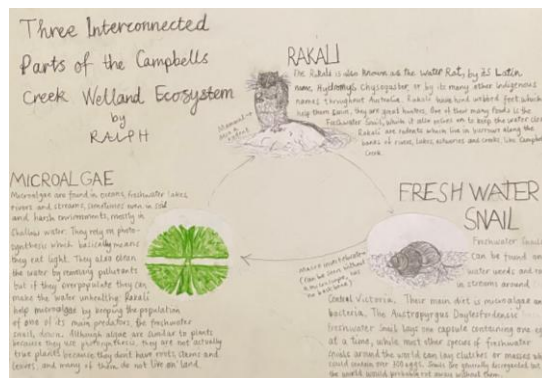 Three Interconnected
Parts of the Campbells
Creek Welland Ecosystem
by
RALPH
RAKALI
The Rakali is also known as the Water Rat, by its Latin
name, Hydromys Chrysogaster, or by its many other Indigenous
names throughout Australia. Rakali have hind webbed feet which
help them swim, they are great hunters. One of their many foods is the
Freshwater Snail, which it also relies on to keep the water clean.
Rakali are rodents which live in burrows along the
banks of rivers, lakes, estuaries and creeks, like Campbells
Creek.
Mammal
MICROALGAE
Microalgae are found in oceans, freshwater lakes,
rivers and streams, sometimes even in soil
and harsh environments, mostly in
shallow water. They rely on photo-
synthesis which basically means
they eat light. They also clean
the water by removing pollutants
but if they overpopulate they can
make the water unhealthy. Rakali
help microalgae by keeping the population
of one of its main predators, the freshwater
snail, down. Although algae are similar to plants
because they use photosynthesis, they are not actually
true plants because they don't have roots, stems and
leaves, and many of them do not live on land.
FRESH WATER
SNAIL
Macro invertebrate
(can be seen without
a microscope, has
no back bone)
Freshwater Snails
can be found on
water weeds and rocks
in streams around
Central Victoria. Their main diet is microalgae and
bacteria. The Austropyrgus
freshwater Snail lays one capsule containing one egg
at a time, while most other species of freshwater
snails around the world lay clutches or masses which
could contain over 100 eggs. Snails are generally
the world would probably not exist without them.